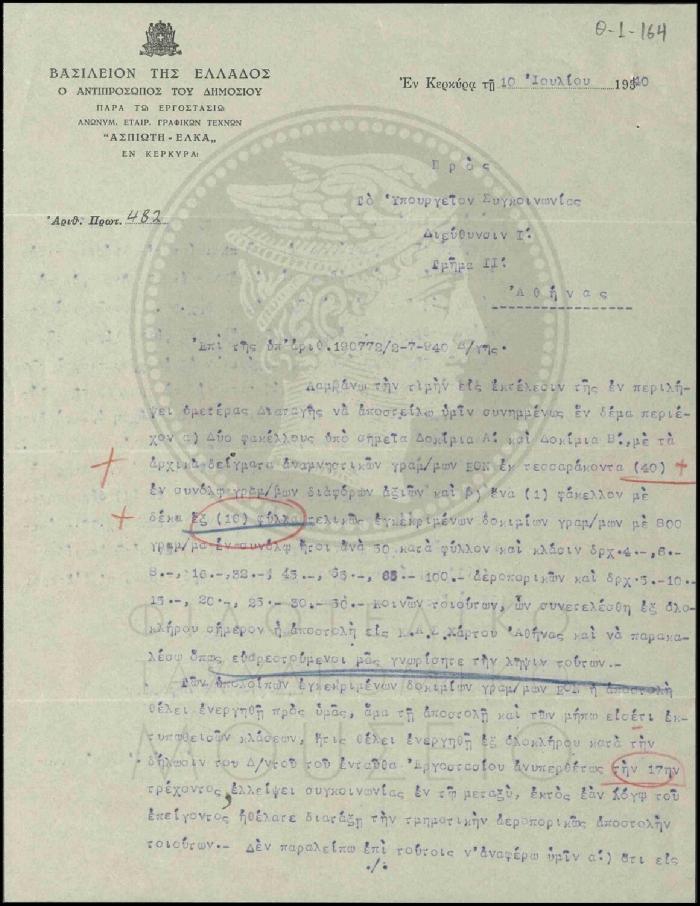 Θ-1-164
ΒΑΣΙΛΕΙΟΝ ΤΗΣ ΕΛΛΑΔΟΣ
Ο ΑΝΤΙΠΡΟΣΩΠΟΣ ΤΟΥ ΔΗΜΟΣΙΟΥ
ΠΑΡΑ ΤΩ ΕΡΓΟΣΤΑΣΙΩ
ΑΝΩΝΥΜ. ΕΤΑΙΡ. ΓΡΑΦΙΚΩΝ ΤΕΧΝΩΝ
"ΑΣΠΙΩΤΗ - ΕΛΚΑ"
ΕΝ ΚΕΡΚΥΡΑ
Ἐν Κερκύρᾳ τῇ 10 Ἰουλίου 1940
Ἀριθ. Πρωτ. 482
Πρὸς
Τὸ Ὑπουργεῖον Συγκοινωνίας
Διεύθυνσιν Τ'.
Τμῆμα ΙΙ'.
Ἀθήνας
Ἐπὶ τῆς ὑπ'ἀριθ.190772/2-7-940 Δ/γῆς.
Λαμβάνω τὴν τιμὴν εἰς ἐκτέλεσιν τῆς ἐν περιλή-
ψει ὑμετέρας Διαταγῆς νὰ ἀποστείλω ὑμῖν συνημμένως ἓν δέμα περιέ-
χον α) Δύο φακέλλους ὑπὸ σημεῖα Δοκίμια Α'. καὶ Δοκίμια Β'.,μὲ τὰ
ἀρχικὰ δείγματα ἀναμνηστικῶν γραμ/μων ΕΟΝ ἐκ τεσσαράκοντα (40)
ἐν συνόλῳ γραμ/βων διαφόρων ἀξιῶν καὶ β) ἕνα (1) φάκελλον μὲ
δέκα ἓξ (16) φύλλα τελικῶς ἐγκεκριμένων δοκιμίων γραμ/μων μὲ 800
γραμ/μα ἐν συνόλῳ ἤτοι ἀνὰ 50 κατὰ φύλλον καὶ κλάσιν δρχ.4.-,6.-
8.-,16.-,32.-, 45.-, 55.-, 65.- 100.- ἀεροπορικῶν καὶ δρχ.5.-10.-
15.-, 20.-, 25.- 30.- 50.- κοινῶν τοιούτων, ὧν συνετελέσθη ἐξ ὁλο-
κλήρου σήμερον ἡ ἀποστολὴ εἰς Κ.Α.Σ Χάρτου Ἀθήνας καὶ νὰ παρακα-
λέσω ὅπως εὐαρεστούμενοι μᾶς γνωρίσητε τὴν λῆψιν τούτων.-
Τῶν ὑπολοίπων ἐγκεκριμένων δοκιμίων γραμ/μων ΕΟΝ ἡ ἀποστολὴ
θέλει ἐνεργηθῇ πρὸς ὑμᾶς, ἅμα τῇ ἀποστολῇ καὶ τῶν μήπω εἰσέτι ἐκ-
τυπωθεισῶν κλάσεων, ἥτις θέλει ἐνεργηθῇ ἐξ ὁλοκλήρου κατὰ τὴν
δήλωσιν τοῦ Δ/ντοῦ τοῦ ἐνταῦθα Ἐργοστασίου ἀνυπερθέτως τὴν 17ην
τρέχοντος ἐλλείψει συγκοινωνίας ἐν τῷ μεταξὺ, ἐκτὸς ἐὰν λόγῳ τοῦ
ἐπείγοντος ἠθέλατε διατάξῃ τὴν τμηματικὴν ἀεροπορικῶς ἀποστολὴν
τοιούτων.- Δὲν παραλείπω ἐπὶ τούτοις ν'ἀναφέρω ὑμῖν α') ὅτι εἰς
./.